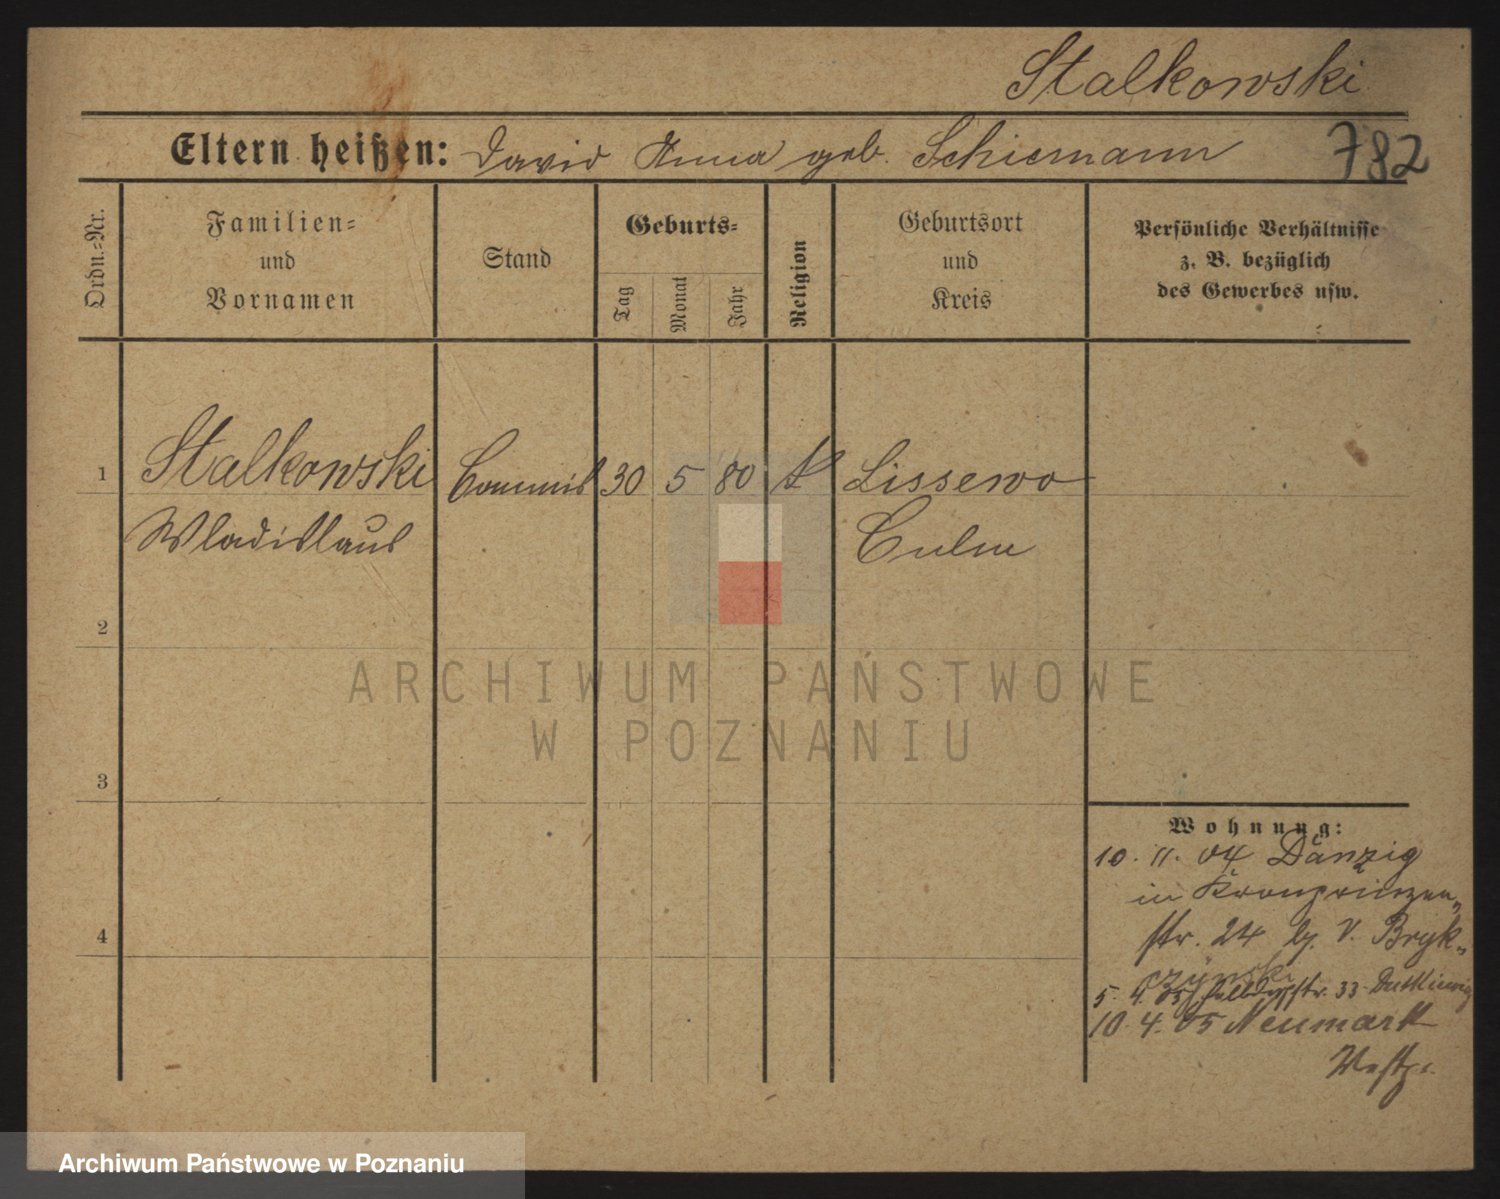 Stalkowski
Eltern heißen: David Anna geb. Schiemann
782
Ordn.-Nr.
Familien-
und
Vornamen
Stand
Geburts-
Tag
Monat
Jahr
Religion
Geburtsort
und
Kreis
Persönliche Verhältnisse
z. B. bezüglich
des Gewerbes usw.
1
Stalkowski Commis 30 5 80 k Lissewo
Wladislaus Culm
2
3
4
Wohnung:
10. 11. 04 Danzig
in Kronprinzen-
str. 24 b. V. Bryk-
czynski
5. 4. 05 str. 33
10. 4. 05 Neumark
Westpr.
ARCHIWUM PAŃSTWOWE
W POZNANIU
Archiwum Państwowe w Poznaniu